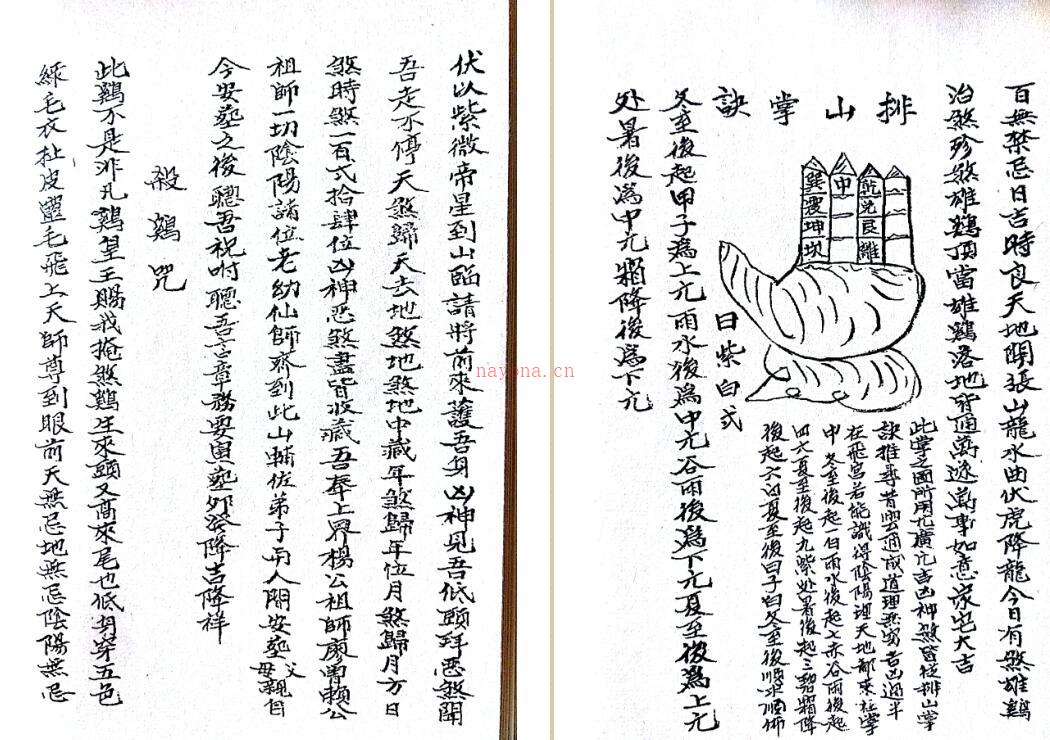 伏以紫微帝星到山臨請將前來護吾身凶神見吾低頭拜惡煞聞
吾走不停天煞歸天去地煞地中藏年煞歸年位月煞歸月方日
煞時煞一百弍拾肆位凶神惡煞盡皆收藏吾奉上界楊公祖師廖曾賴公
祖師一切陰陽諸位老幼仙師齊到此山輔佐弟子兩人開安塟父母親自
今安塟之後聽吾祝咐聽吾言章務要寅塟卯發降吉降祥
殺鷄咒
此鷄不是非凡鷄皇王賜我掩煞鷄生來頭又高來尾也低身穿五色
綵毛衣扯皮靈毛飛上天師尊到眼前天無忌地無忌陰陽無忌
百無禁忌日吉時良天地開張山龍水曲伏虎降龍今日有煞雄鷄
治煞珍煞雄鷄頂當雄鷄落地皆通萬逐萬事如意家宅大吉
排山掌訣
乾兌艮離
中
巽震坤坎
此掌之圖所用尤廣凢吉凶神煞皆從排山掌
訣推尋昔師云通成道理無窮吉凶過半
在飛宮若能識得陰陽理天地都來在掌
中冬至後起一白雨水後起七赤谷雨後起
四六夏至後起九紫处暑後起三碧霜降
後起六白夏至後日子白冬至後順求順佈
日紫白式
冬至後起甲子爲上元雨水後爲中元谷雨後爲下元夏至後爲上元
处暑後爲中元霜降後爲下元
nayona.cn